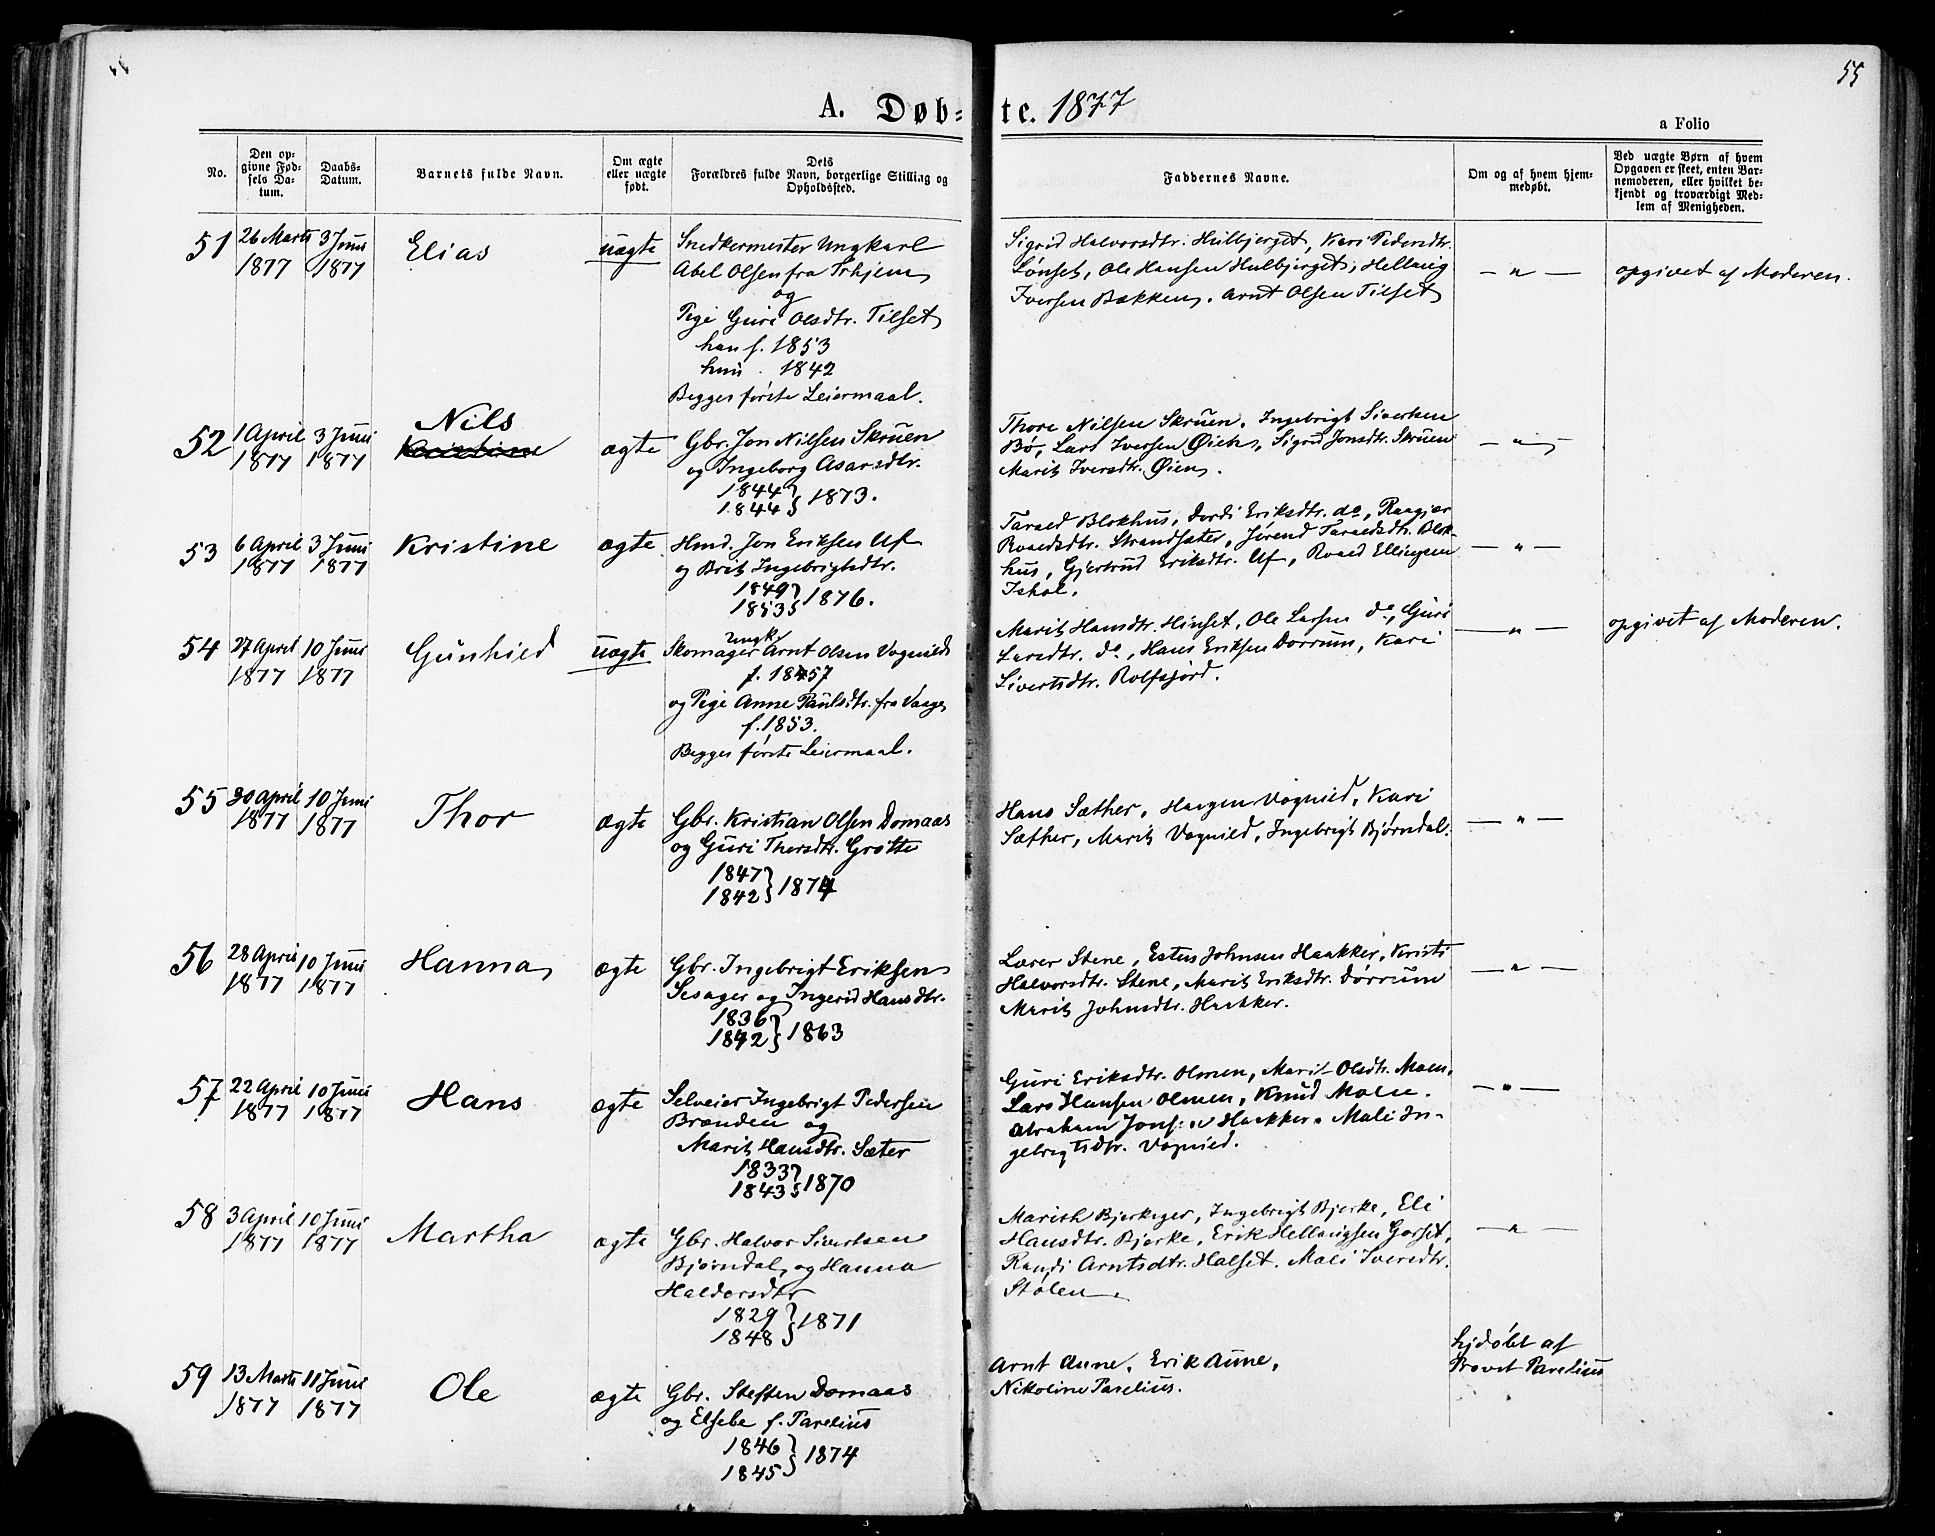 55
A. Døb=te. 1877
a Folio
No.
Den op=
givne Fød=
sels Da=
tum.
Daabs=
Datum.
Barnets fulde Navn.
Om ægte
eller uægte
født.
Dets
Forældres fulde Navn, borgerlige Stilling og
Opholdssted.
Faddernes Navne.
Om og af hvem hjem=
medøbt.
Ved uægte Børn af hvem
Opgaven er skeet, enten Bar=
nemoderen, eller hvilket be=
kjendt og troværdigt Med=
lem af Menigheden.
51
26 Marts
1877
3 Juni
1877
Elias
uægte
Snedkermester Ungkarl
Abel Olsen fra
og
Pige Guri Olsdtr. Tilset
han f. 1853
hun . 1842
Begges første Leiermaal.
Sigrid Halvorsdtr. Hulbjerget, Kari Pedersdtr.
Lønset, Ole Hansen Hulbjerget, Hellevig
Iversen Bækken, Arnt Olsen Tilset
— " —
opgivet af Moderen.
52
1 April
1877
3 Juni
1877
Nils
Kristine
ægte
Gbr. Jon Nilsen Skruen
og Ingeborg Asarsdtr.
1844 } 1873.
1844
Thore Nilsen Skruen, Ingebrigt Sivertsen
Bø, Lars Iversen Øien, Sigrid Jonsdtr. Skruen
Marit Iversdtr. Øien.
— " —
53
6 April
1877
3 Juni
1877
Kristine
ægte
Hmd. Jon Eriksen Uf
og Brit Ingebrigtsdtr.
1849 } 1876.
1853
Tarald Blokhus, Dordi Eriksdtr. do, Ragjær
Roaldsdtr. Strandsæter, Jørend Taraldsdtr. Blok-
hus, Gjertrud Eriksdtr. Uf, Roald Ellingsen
Ishol.
— " —
54
27 April
1877
10 Juni
1877
Gunhild
uægte
Ungk.
Skomager Arnt Olsen Vognild
f. 1857
og Pige Anne Paulsdtr. fra Vaage
f. 1853.
Begges første Leiermaal.
Marit Hansdtr. Hinset, Ole Larsen do, Guri
Larsdtr. do, Hans Eriksen Dørrum, Kari
Sivertsdtr. Rolfsjord.
— " —
opgivet af Moderen.
55
30 April
1877
10 Juni
1877
Thor
ægte
Gbr. Kristian Olsen Domaas
og Guri Thorsdtr. Grøtte
1847 } 1874
1842
Hans Sæther, Haagen Vognild, Kari
Sæther, Marit Vognild, Ingebrigt Bjørndal.
— " —
56
28 April
1877
10 Juni
1877
Hanna
ægte
Gbr. Ingebrigt Eriksen
Sesager og Ingerid Hansdtr.
1836 } 1863
1842
Lærer Stene, Esten Johnsen Haakker, Kirsti
Halvorsdtr. Stene, Marit Eriksdtr. Dørrum
Marit Johnsdtr. Haakker.
— " —
57
22 April
1877
10 Juni
1877
Hans
ægte
Selveier Ingebrigt Pedersen
Brænden og
Marit Hansdtr. Sæter
1833 } 1870
1843
Guri Eriksdtr. Olmen, Marit Olsdtr. Moen,
Lars Hansen Olmen, Knud Moen.
Abraham Jonsen Haakker. Mali In-
gebrigtsdtr. Vognild.
— " —
58
3 April
1877
10 Juni
1877
Martha
ægte
Gbr. Halvor Sivertsen
Bjørndal, og Hanna
Haldorsdtr
1829 } 1871
1848
Marith Bjerkeger, Ingebrigt Bjerke, Eli
Hansdtr. Bjerke, Erik Hellevigsen Gorset,
Randi Arntsdtr. Halset. Mali Iversdtr.
Stølen.
— " —
59
13 Marts
1877
11 Juni
1877
Ole
ægte
Gbr. Steffen Domaas
og Elsebe f. Parelius
1846 } 1874
1845
Arnt Aune, Erik Aune,
Nikoline Parelius.
hjdøbt af
Provst Parelius